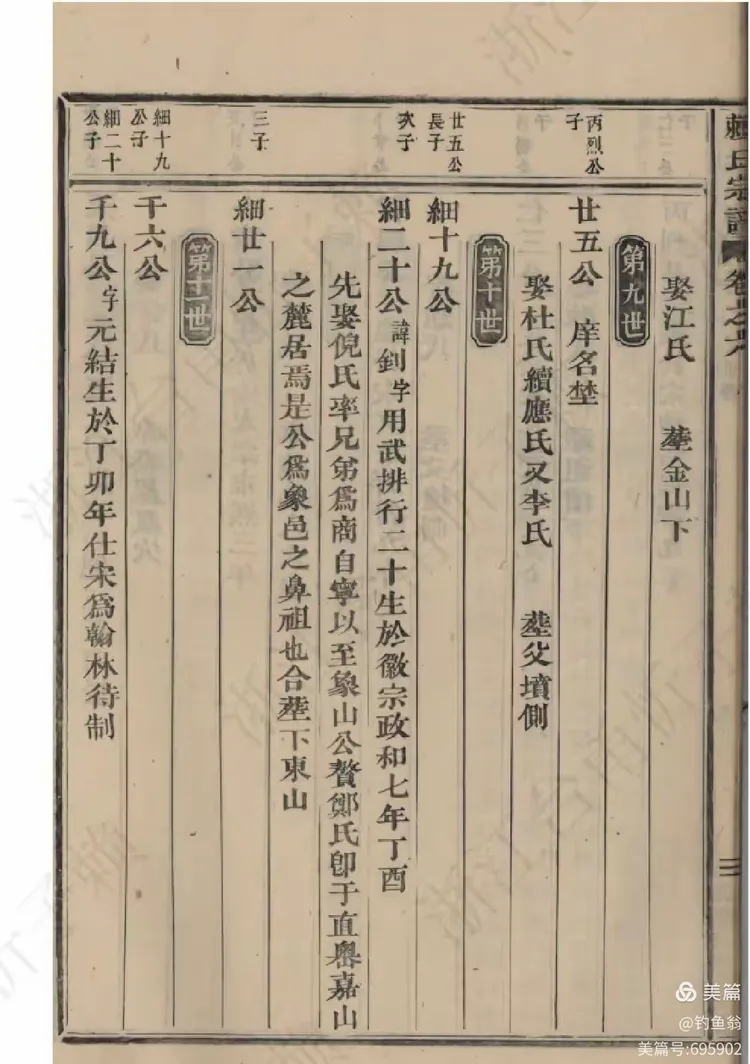 賴氏宗譜 卷之六
三
娶江氏 塟金山下
第九世
丙烈公子
廿五公 庠名埜
娶杜氏續應氏又李氏 塟父墳側
第十世
廿五公長子
細十九公
次子
細二十公諱釗字用武排行二十生於徽宗政和七年丁酉
先娶倪氏率兄弟為商自寧以至象山公贅鄭氏卽于直嶴嘉山
之麓居焉是公為象邑之鼻祖也合塟下東山
三子
細廿一公
第十一世
細十九公子
千六公
細二十公子
千九公字元結生於丁卯年仕宋為翰林待制
美篇
@钓鱼翁
美篇号:695902